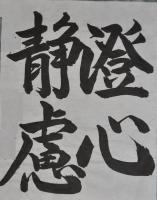 澄心
静慮